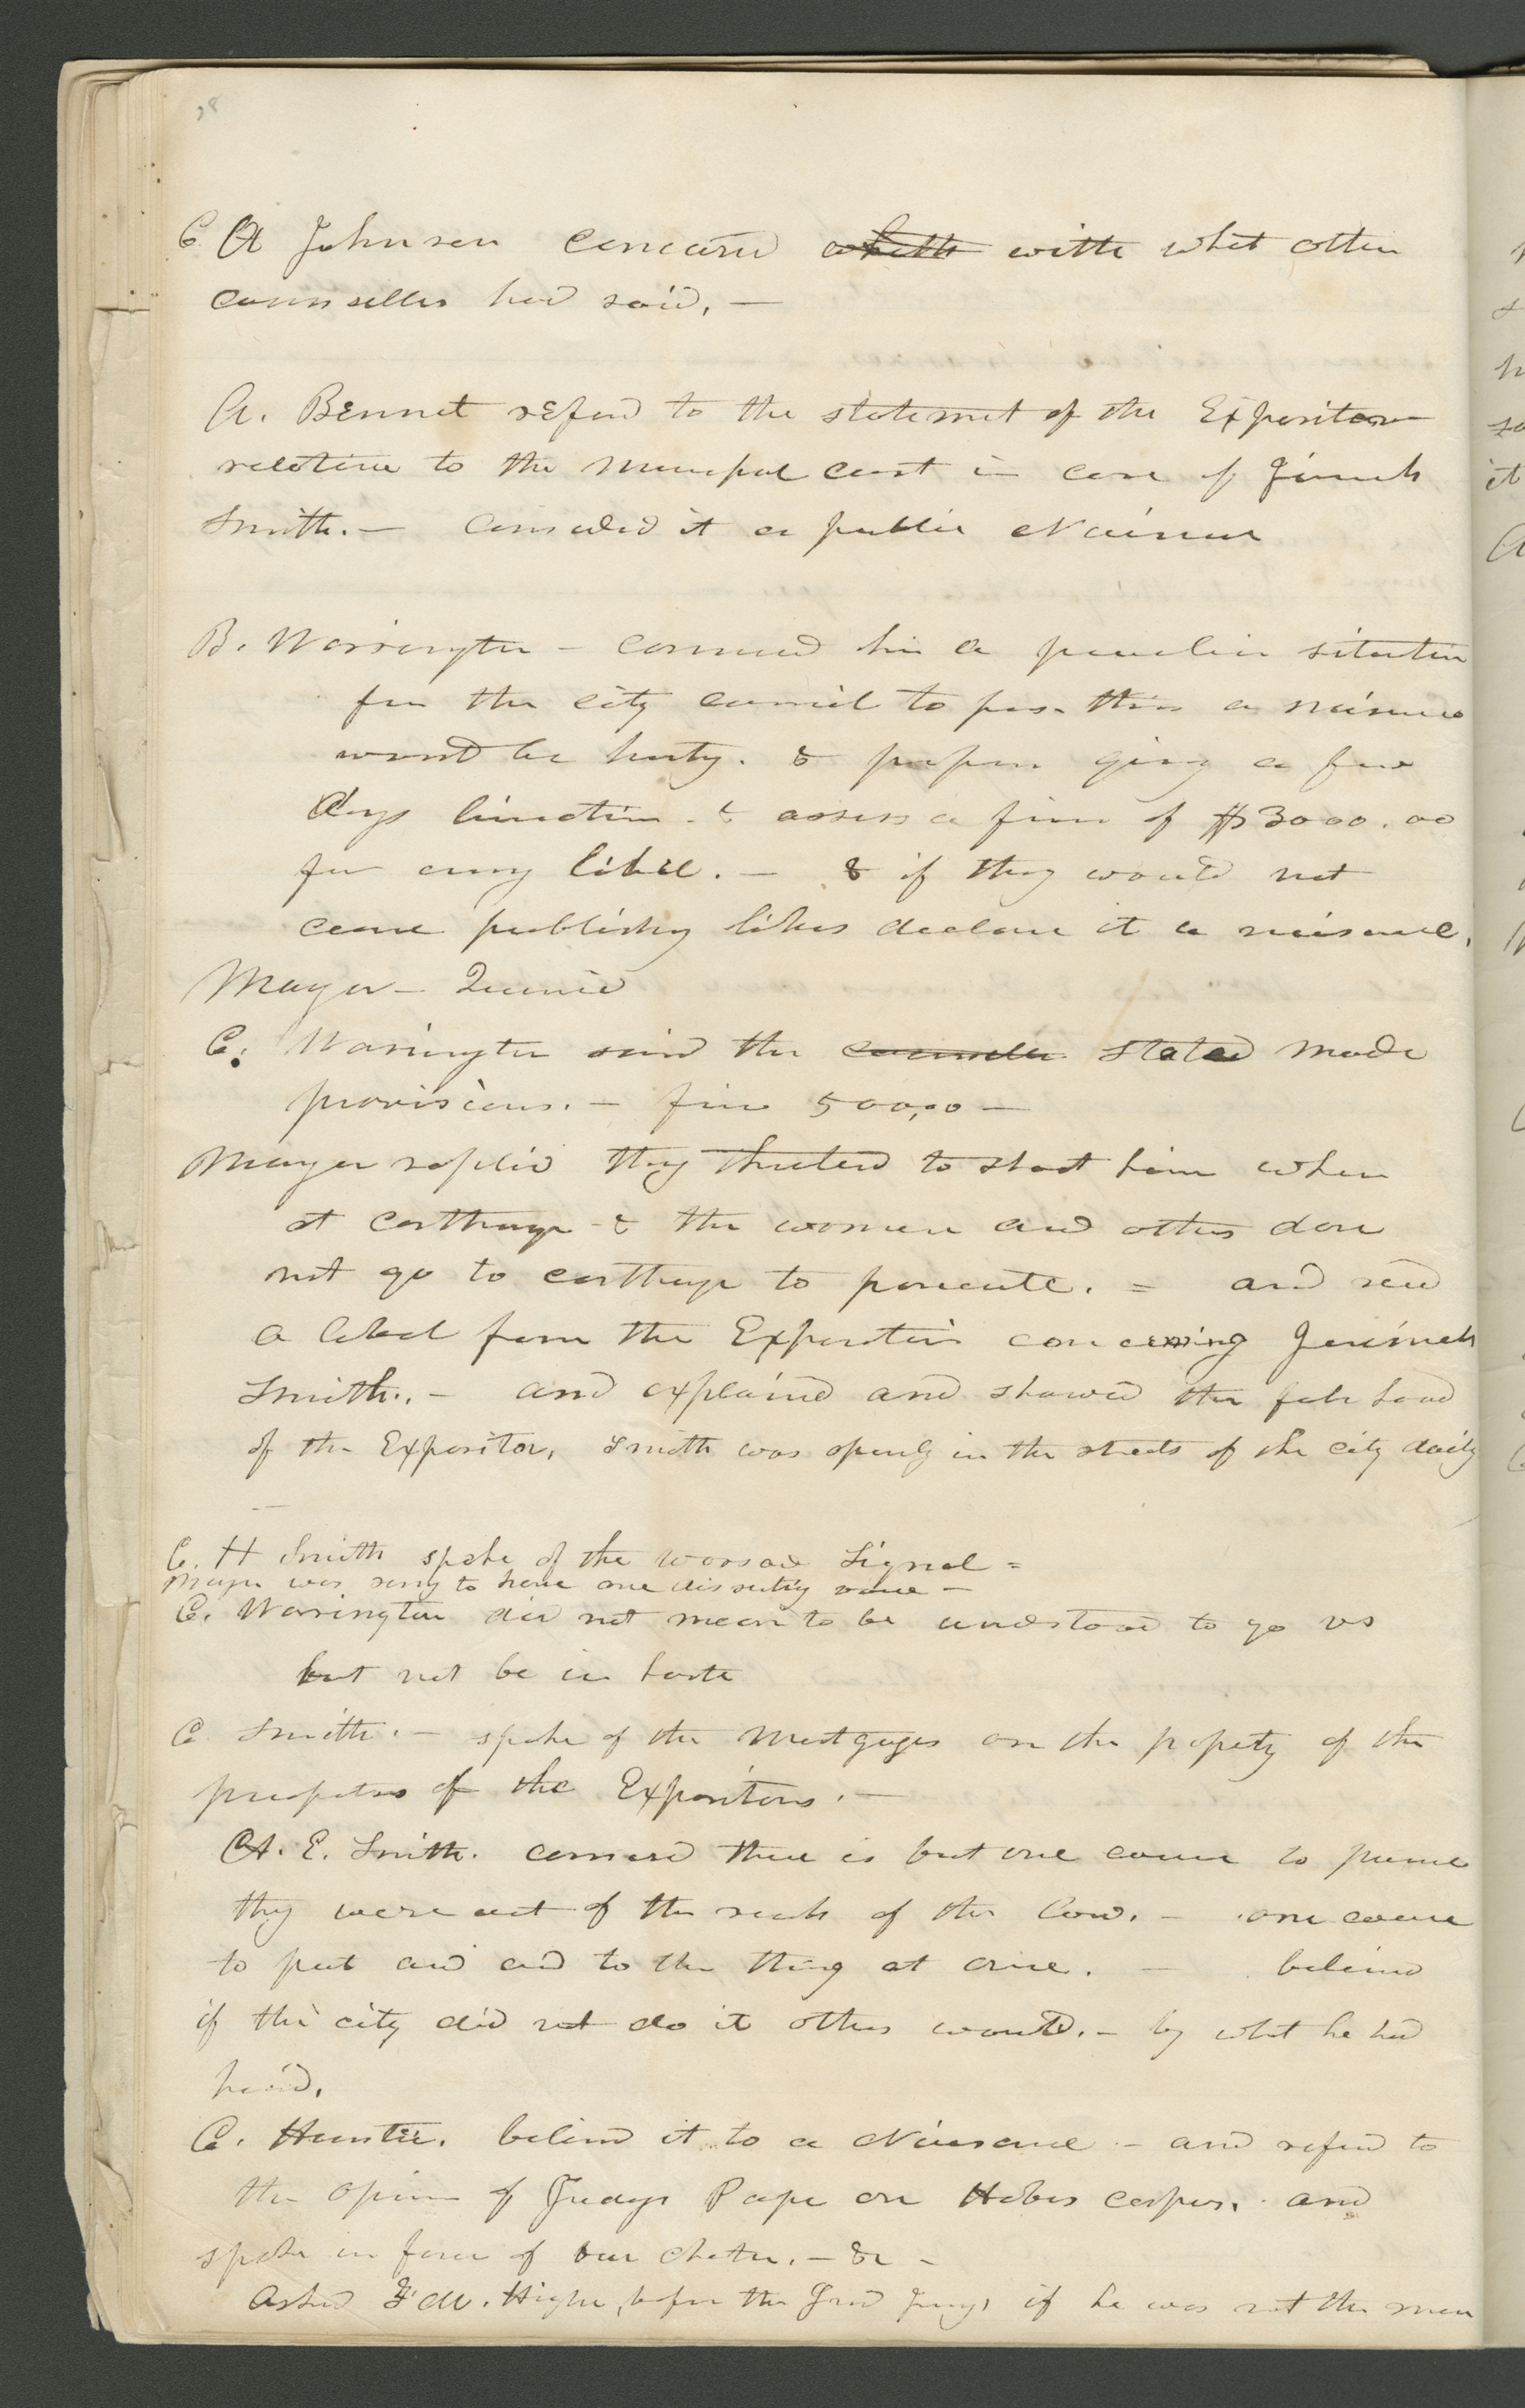 C A Johnson concurred whith with what other
counsellers had said, —
A. Bennet referd to the statemet of the Expositor
relative to the Municpal cout in case of Jimeah
Smith. — considerd it a public Nuisnce
B. Warrington — concived him a peculiar situation
for the city council to pass this a nuisance
would be hasty. & propose givng a few
days limation. & assess a fine of $3000.00
for evry libel. — & if they would not
cease publishig libes declare it a nuisance.
Mayor — Quried
C. Warrington said the councellr stated made
provisions. — fine 500,00 —
Mayor replid they threted to shoot him when
at carthage & the women and othes dare
not go to carthage to prosecute. = and read
a libel from the Expositor concerning Jerimah
Smith. — and explaind and showed the falshood
of the Expositor, Smith was openly in the streets of the city daily
—
C. H Smith spoke of the warsaw Signal =
Mayor was sorry to have one dissentig voice —
C. Warrington did not mean to be undstood to go vs
but not be in haste
C Smith. — spoke of the Mortgages on the propety of the
propetors of the Expositors. —
A. E. Smith. concived there is but one course to pursue
they were out of the reach of the Law. — one course
to put an end to the thing at once. — belived
if the city did not do it othes would. — by what he had
heard.
C. Hunter. belivd it to a Nuisance — and referd to
the Opinion of Judge Pope on Habes corpus. and
spoke in favor of our charter. — &c —
Asked F. M. Higbee, before the Grand Jury, if he was not the man